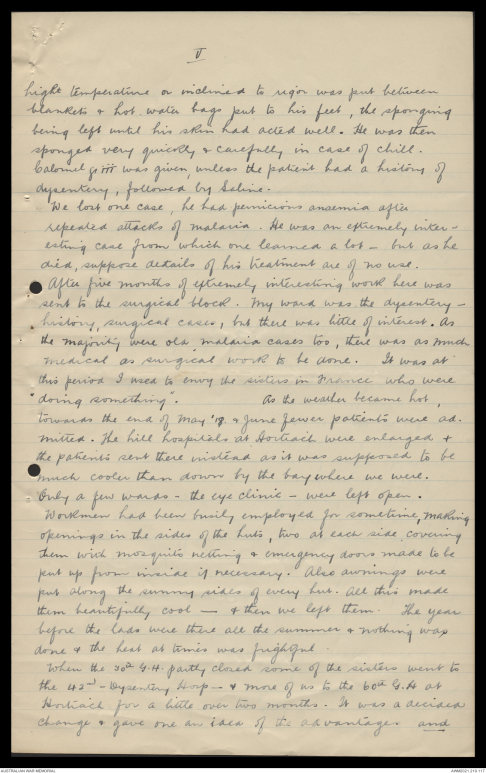 V
high temperature or inclined to rigor was put between
blankets & hot water bags put to his feet, the sponging
being left until his skin had acted well. He was then
sponged very quickly & carefully in case of chill.
Calomel grs iii was given, unless the patient had a history of
dysentery, followed by Saline.
We lost one case, he had pernicious anaemia after
repeated attacks of malaria. He was an extremely inter-
esting case from which one learned a lot — but as he
died, suppose details of his treatment are of no use.
After five months of extremely interesting work here was
sent to the surgical block. My ward was the dysentery-
history, surgical cases, but there was little of interest. As
the majority were old malaria cases too, there was as much
medical as surgical work to be done. It was at
this period I used to envy the sisters in France who were
"doing something". As the weather became hot,
towards the end of May '18 & June fewer patients were ad-
mitted. The hill hospitals at Hortiach were enlarged &
the patients sent there instead as it was supposed to be
much cooler than down by the bay where we were.
Only a few wards - the eye clinic - were left open.
Workmen had been busily employed for sometime, making
openings in the sides of the huts, two at each side, covering
them with mosquito netting & emergency doors made to be
put up from inside if necessary. Also awnings were
put along the sunny sides of every hut. All this made
them beautifully cool — & then we left them. The year
before the lads were there all the summer & nothing was
done & the heat at times was frightful.
When the 50th G.H. partly closed some of the sisters went to
the 42nd - Dysentery Hosp - & more of us to the 60th G.H at
Hortiach for a little over two months. It was a decided
change & gave one an idea of the advantages and
AUSTRALIAN WAR MEMORIAL